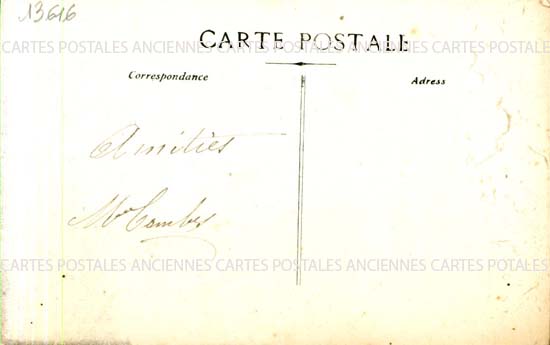 13616
CARTE POSTALE
CARTES POSTALES ANCIENNES CARTES POSTALES ANCIENNES CARTES POSTALES
Correspondance
Adress
Amitiés
Combes
CARTES POSTALES ANCIENNES CARTES POSTALES ANCIENNES CARTES POTALES